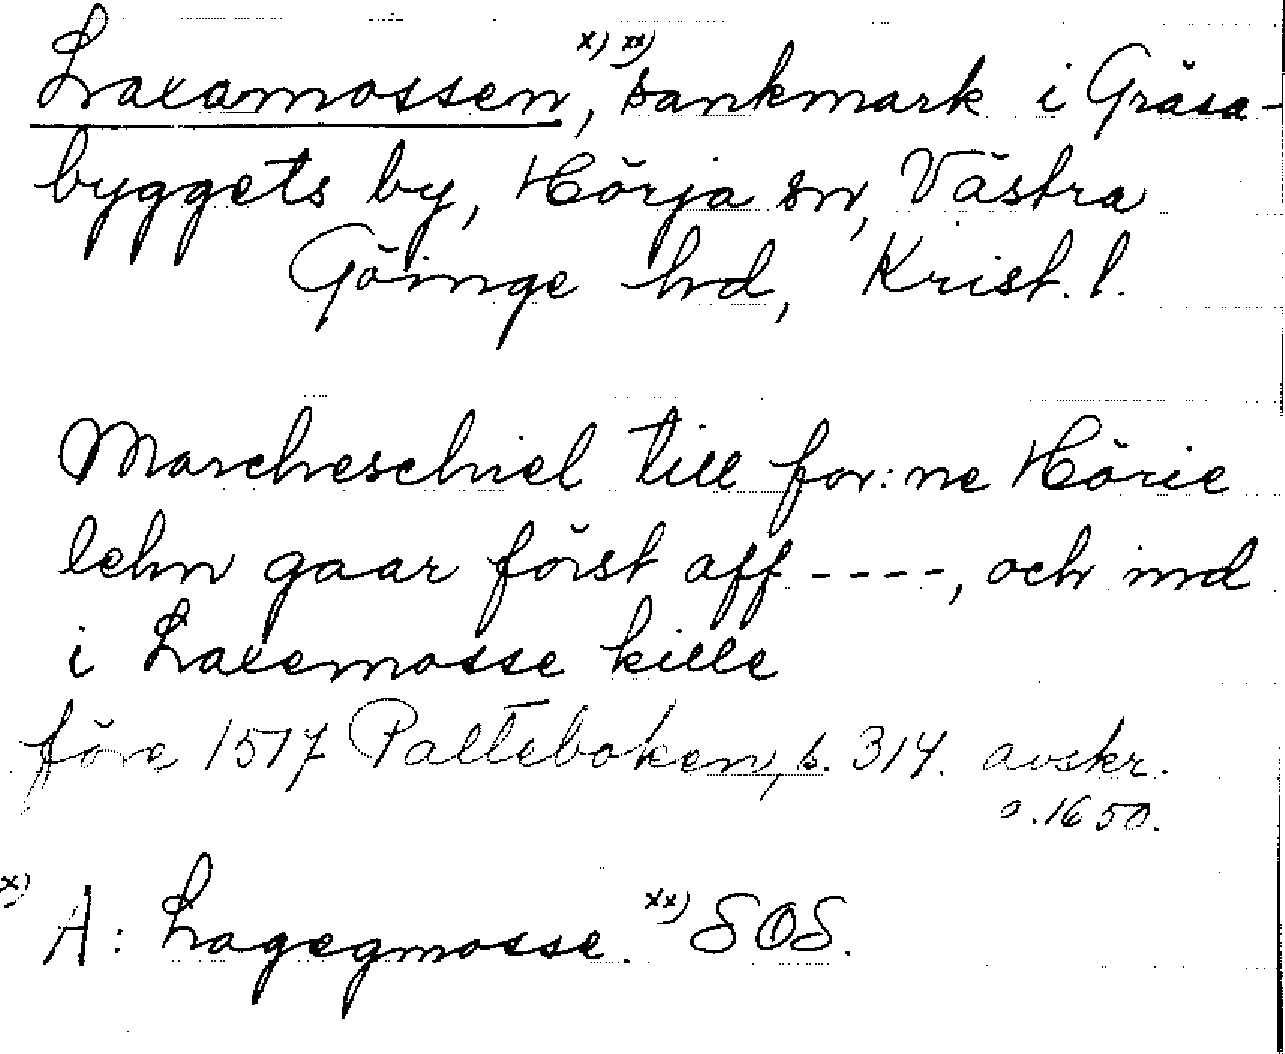 Laxamossen, x) xx) sankmark i Gräsa-
byggets by, Hörja sn, Västra
Göinge hrd, Krist. l.
Marcheschiel till for:ne Hörie
lehn gaar först aff ----, och ind
i Laxemosse kille
före 1517 Palteboken, s. 314. avskr.
o. 1650.
x) A: Lagegmosse. xx) SOS.